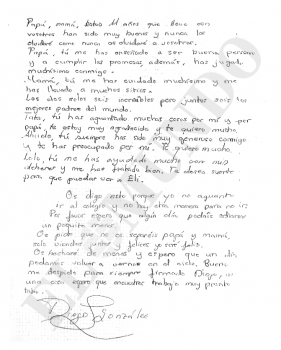 Papá, mamá, estos 11 años que llevo con
vosotros han sido muy buenos y nunca los
olvidaré como nunca os olvidaré a vosotros.
Papá, tú me has enseñado a ser buena persona
y a cumplir las promesas, además, has jugado
muchísimo conmigo.
Mamá, tú me has cuidado muchísimo y me
has llevado a muchos sitios.
Los dos sois increíbles pero juntos sois los
mejores padres del mundo.
Tata, tú has aguantado muchas cosas por mí y por
papá, te estoy muy agradecido y te quiero mucho.
Abuelo, tú siempre has sido muy generoso conmigo
y te has preocupado por mí. Te quiero mucho.
Lolo, tú me has ayudado mucho con mis
deberes y me has tratado bien. Te deseo suerte
para que puedas ver a Eli.
Os digo esto porque yo no aguanto
ir al colegio y no hay otra manera para no ir.
Por favor espero que algún día podáis odiarme
un poquito menos.
Os pido que no os separéis papá y mamá,
sólo viéndoos juntos y felices yo seré feliz.
Os echaré de menos y espero que un día
podamos volver a vernos en el cielo. Bueno,
me despido para siempre. Firmado Diego. Ah,
una cosa espero que encuentres trabajo muy pronto
Tata.
Diego González